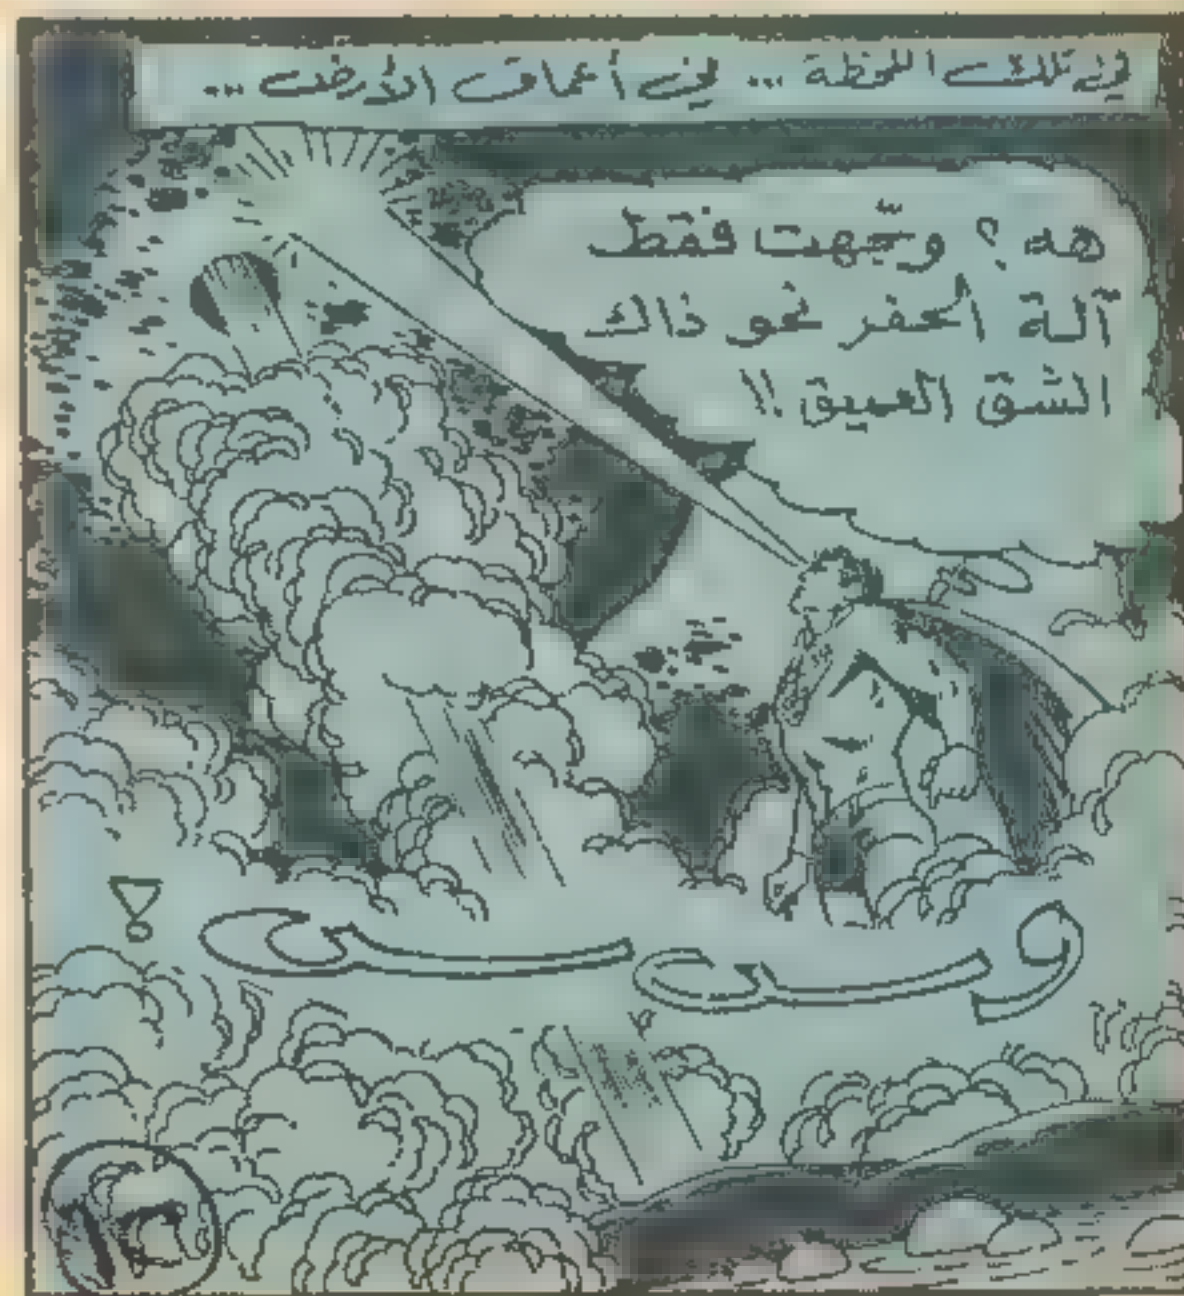 في تلك اللحظة ... في أعماق الأرض ...
هه ؟ وجّهت فقط
آلة الحفر نحو ذاك
الشق العميق !!